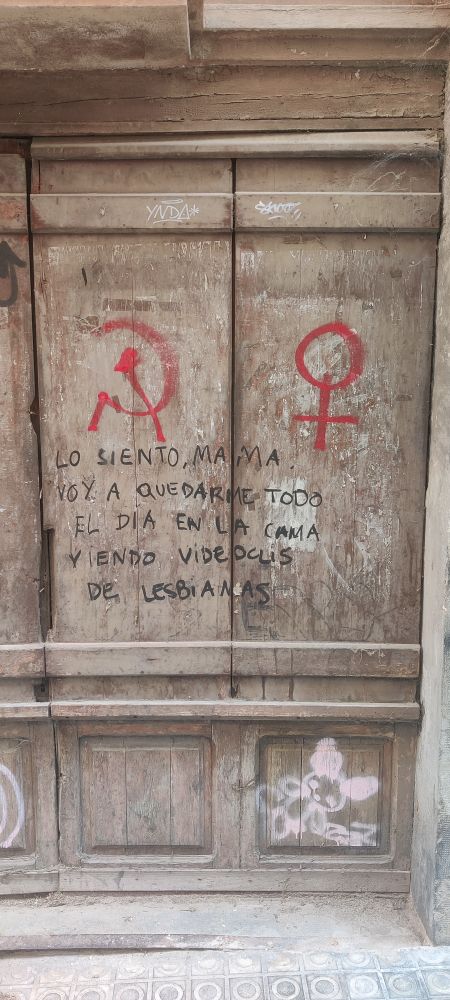 YNDA*
LO SIENTO, MAMA.
VOY A QUEDARME TODO
EL DIA EN LA CAMA
VIENDO VIDEOCLIS
DE LESBIANAS